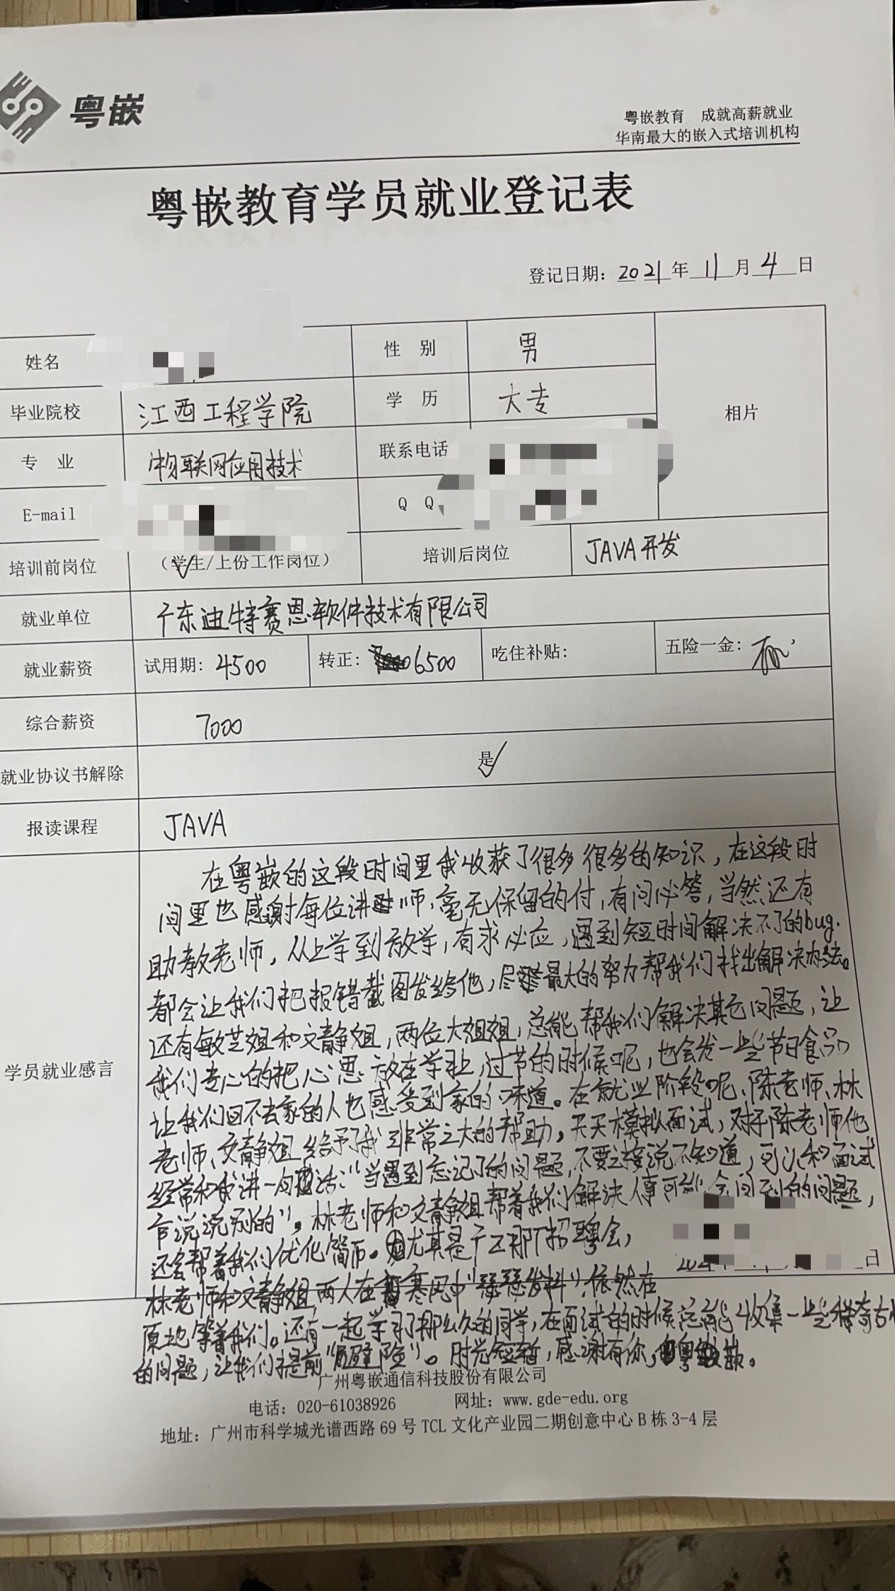 粤嵌
粤嵌教育 成就高薪就业
华南最大的嵌入式培训机构
粤嵌教育学员就业登记表
登记日期：2021年11月4日
姓名
性 别 男
相片
毕业院校 江西工程学院 学 历 大专
专 业 物联网应用技术 联系电话
E-mail Q Q
培训前岗位 （学生/上份工作岗位） 培训后岗位 JAVA开发
就业单位 广东迪特赛恩软件技术有限公司
就业薪资 试用期：4500 转正：6500 吃住补贴： 五险一金：有
综合薪资 7000
就业协议书解除 是
报读课程 JAVA
学员就业感言
在粤嵌的这段时间里我收获了很多很多的知识，在这段时
间里也感谢每位讲师，毫无保留的付，有问必答，当然还有
助教老师，从上学到放学，有求必应，遇到短时间解决不了的bug.
都会让我们把报错截图发给他，尽最大的努力帮我们找出解决办法。
还有敏芝姐和文静姐，两位大姐姐，总能帮我们解决其它问题，让
我们专心的把心思放在学业，过节的时候呢，也会发一些节日食品
让我们回不去家的人也感受到家的味道。在就业阶段呢，陈老师、林
老师、文静姐给予了我非常之大的帮助，天天模拟面试，对于陈老师他
经常和我讲一句话：“当遇到忘记了的问题，不要直接说不知道，可以和面试
官说说别的”。林老师和文静姐帮着我们解决人事可能会问到的问题，
还会帮着我们优化简历。尤其是广工那个招聘会，
林老师和文静姐两人在寒风中“瑟瑟发抖”，依然在
原地等着我们。还有一起学习那么久的同学，在面试的时候总能收集一些稀奇古怪
的问题，让我们提前“避险”。时光短暂，感谢有你，粤嵌。
日
广州粤嵌通信科技股份有限公司
电话：020-61038926 网址：www.gde-edu.org
地址：广州市科学城光谱西路69号TCL文化产业园二期创意中心B栋3-4层